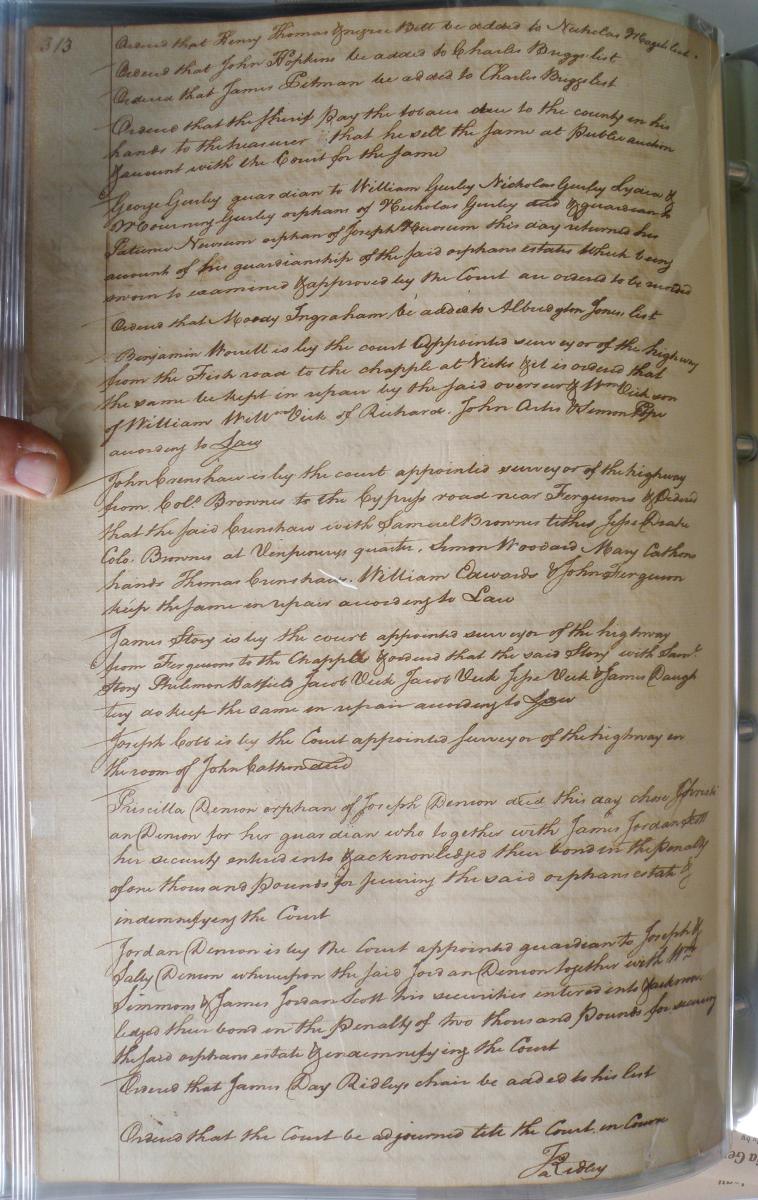 313
Ordered that Henry Thomas & negroe Bett be added to Nicholas Magets list
Ordered that John Hopkins be added to Charles Briggs list
Ordered that James Pitman be added to Charles Briggs list
Ordered that the Sherif pay the tobacco due to the county in his
hands to the treasurer that he sell the same at Public auction
& account with the Court for the same
George Gurley guardian to William Gurley Nicholas Gurley Lydia &
Mourning Gurley orphans of Nicholas Gurley decd & guardian to
Patience Newsum orphan of Joseph Newsum this day returned his
account of his guardianship of the said orphans estates which being
sworn to examined & approved by the Court are ordered to be recorded
Ordered that Moody Ingraham be added to Albridgton Jones list
Benjamin Worrell is by the court appointed surveyor of the highway
from the Fish road to the chapple at Vicks & it is ordered that
the same be kept in repair by the said overseer & Wm Vick son
of William Willm Vick of Richard, John Artis & Simon Pope
according to Law
John Crenshaw is by the court appointed surveyor of the highway
from Colo. Brownes to the Cypress road near Fergusons & Ordered
that the said Crenshaw with Samuel Brownes tithes Jesse Drake
Colo. Brownes at quarter, Simon Woodard Mary Cathons
hands Thomas Crenshaw, William Edwards & John Ferguson
keep the same in repair according to Law
James Story is by the court appointed surveyor of the highway
from Fergusons to the Chapple & ordered that the said Story with Saml.
Story Philemon Hatfield Jacob Vick Jacob Vick Jesse Vick & James Daugh
try do keep the same in repair according to Law
Joseph Cobb is by the Court appointed surveyor of the highway in
the room of John Cathon decd
Priscilla Denson orphan of Joseph Denson decd this day chose Christi
an Denson for her guardian who together with James Jordan Scott
her security entered into & acknowledged their bond in the penalty
of one thousand pounds for securing the said orphans estate &
indemnifying the Court
Jordan Denson is by the Court appointed guardian to Joseph &
Sally Denson whereupon the said Jordan Denson together with Wm
Simmons & James Jordan Scott his securities entered into & acknow
ledged their bond in the penalty of two thousand pounds for securing
the said orphans estate & indemnifying the Court
Ordered that James Day Ridleys chair be added to his list
Ordered that the Court be adjourned till the Court in Course
Ja Ridley